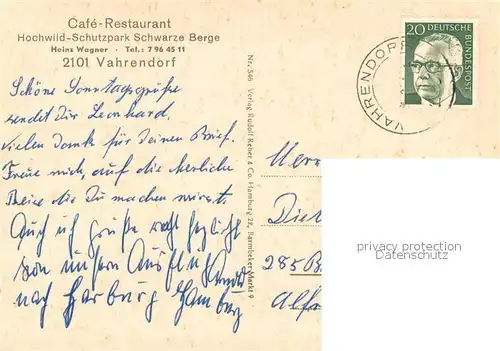 Café-Restaurant
Hochwild-Schutzpark Schwarze Berge
Heinz Wagner · Tel.: 7 96 45 11
2101 Vahrendorf
Schöne Sonntagsgrüße
sendet Dir Leonhard.
Vielen Dank für Deinen Brief.
Freue mich, auf die herrliche
Reise die Du machen wirst.
Auch ich grüße recht herzlich
von unsern Ausflug
nach Harburg Hamburg
Nr. 546 Verlag Rudolf Reher & Co. Hamburg 22, Barmbeker Markt 9
VAHRENDORF
20 DEUTSCHE
BUNDESPOST
Herr
Diet
285 B
Alfr
privacy protection
Datenschutz